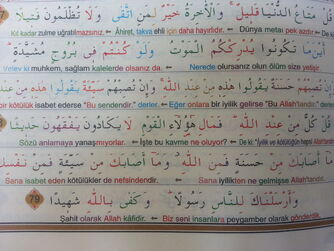 مَتَاعُ الدُّنْيَا قَلِيلٌ وَالْآخِرَةُ خَيْرٌ لِمَنِ اتَّقَى وَلَا تُظْلَمُونَ فَتِيلًا
Kıl kadar zulme uğratılmazsınız. Âhiret, takva ehli için daha hayırlıdır. Dünya metaı pek azdır
أَيْنَ مَا تَكُونُوا يُدْرِكْكُمُ الْمَوْتُ وَلَوْ كُنْتُمْ فِي بُرُوجٍ مُشَيَّدَةٍ
Velev ki muhkem, sağlam kalelerde olsanız da. Nerede olursanız olun ölüm size yetişir.
تُصِبْهُمْ حَسَنَةٌ يَقُولُوا هَذِهِ مِنْ عِنْدِ اللَّهِ وَإِنْ تُصِبْهُمْ سَيِّئَةٌ يَقُولُوا هَذِهِ
bir kötülük isabet ederse "Bu sendendir." derler. Eğer onlara bir iyilik gelirse "Bu Allah'tandır."
قُلْ كُلٌّ مِنْ عِنْدِ اللَّهِ فَمَالِ هَؤُلَاءِ الْقَوْمِ لَا يَكَادُونَ يَفْقَهُونَ حَدِيثًا
Sözü anlamaya yanaşmıyorlar. İşte bu kavme ne oluyor? De ki: "İyilik ve kötülüğün hepsi Allah'tandır
مَا أَصَابَكَ مِنْ حَسَنَةٍ فَمِنَ اللَّهِ وَمَا أَصَابَكَ مِنْ سَيِّئَةٍ فَمِنْ نَفْسِكَ
Sana isabet eden kötülükler de nefsindendir. Sana iyilikten ne gelmişse Allah'tandır.
وَأَرْسَلْنَاكَ لِلنَّاسِ رَسُولًا وَكَفَى بِاللَّهِ شَهِيدًا 79
Şahit olarak Allah kâfidir. Biz seni insanlara peygamber olarak gönderdik.